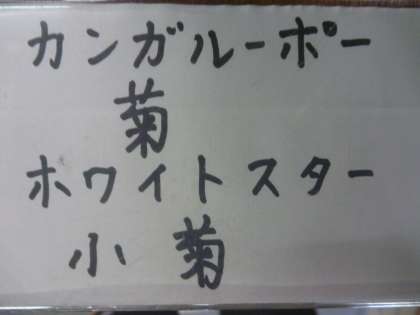 カンガルーポー
菊
ホワイトスター
小菊